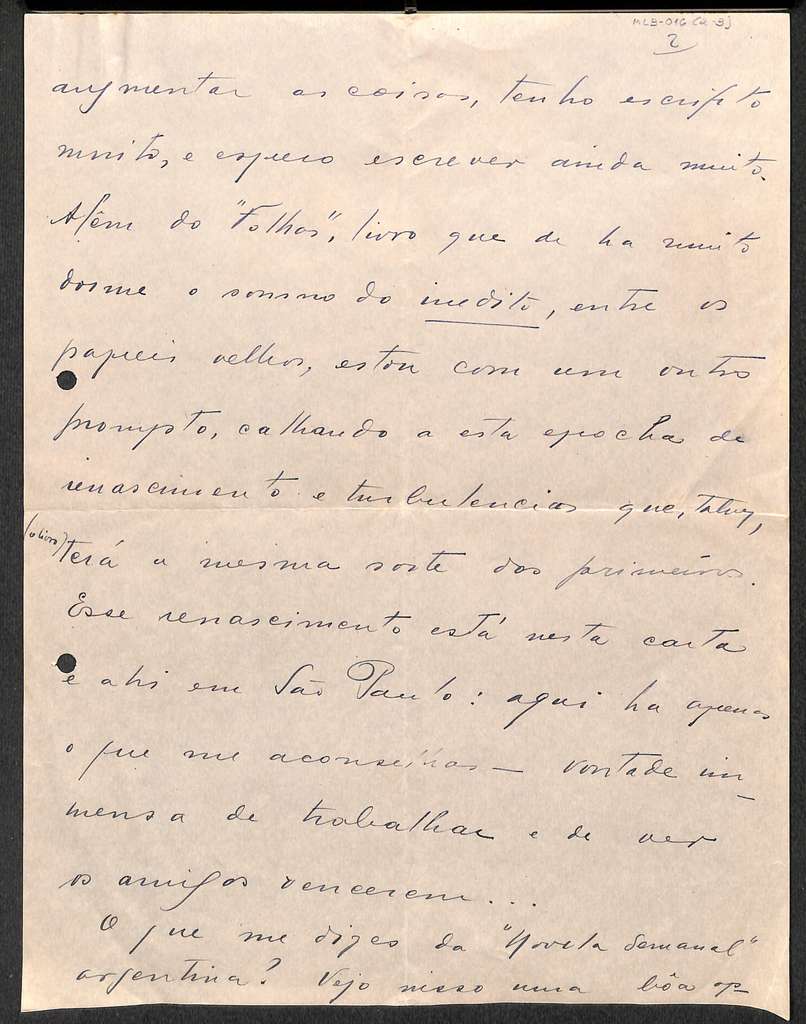 MLB-016 [2-3]
2
augmentar as coisas, tenho escripto
muito, e espero escrever ainda muito.
Além do "Folhas", livro que de ha muito
dorme o somno do inedito, entre os
papeis velhos, estou com um outro
prompto, calhando a esta epocha de
renascimento e turbulencias que, talvez,
(o livro) terá a mesma sorte dos primeiros.
Esse renascimento está nesta carta
e ahi em São Paulo: aqui ha apenas
o que me aconselhas — vontade im-
mensa de trabalhar e de ver
os amigos vencerem...
O que me dizes da "Novela Semanal"
argentina? Vejo nisso uma bôa op-